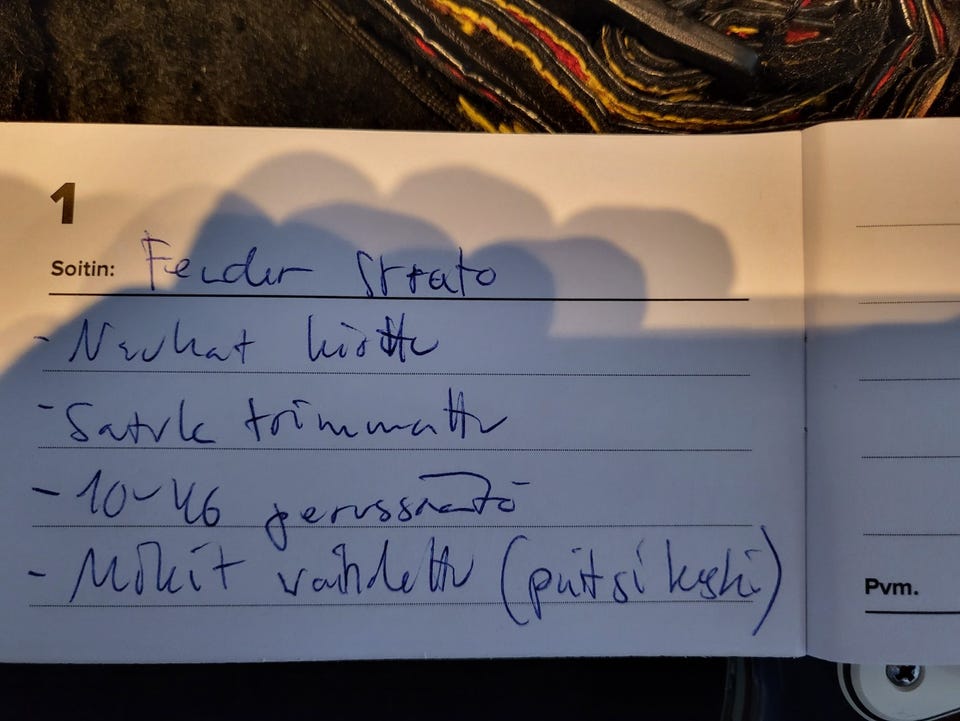 1
Soitin: Fender Strato
- Nauhat hiottu
- Satula trimmattu
- 10-46 perussäätö
- Mikit vaihdettu (paitsi keski)
Pvm.